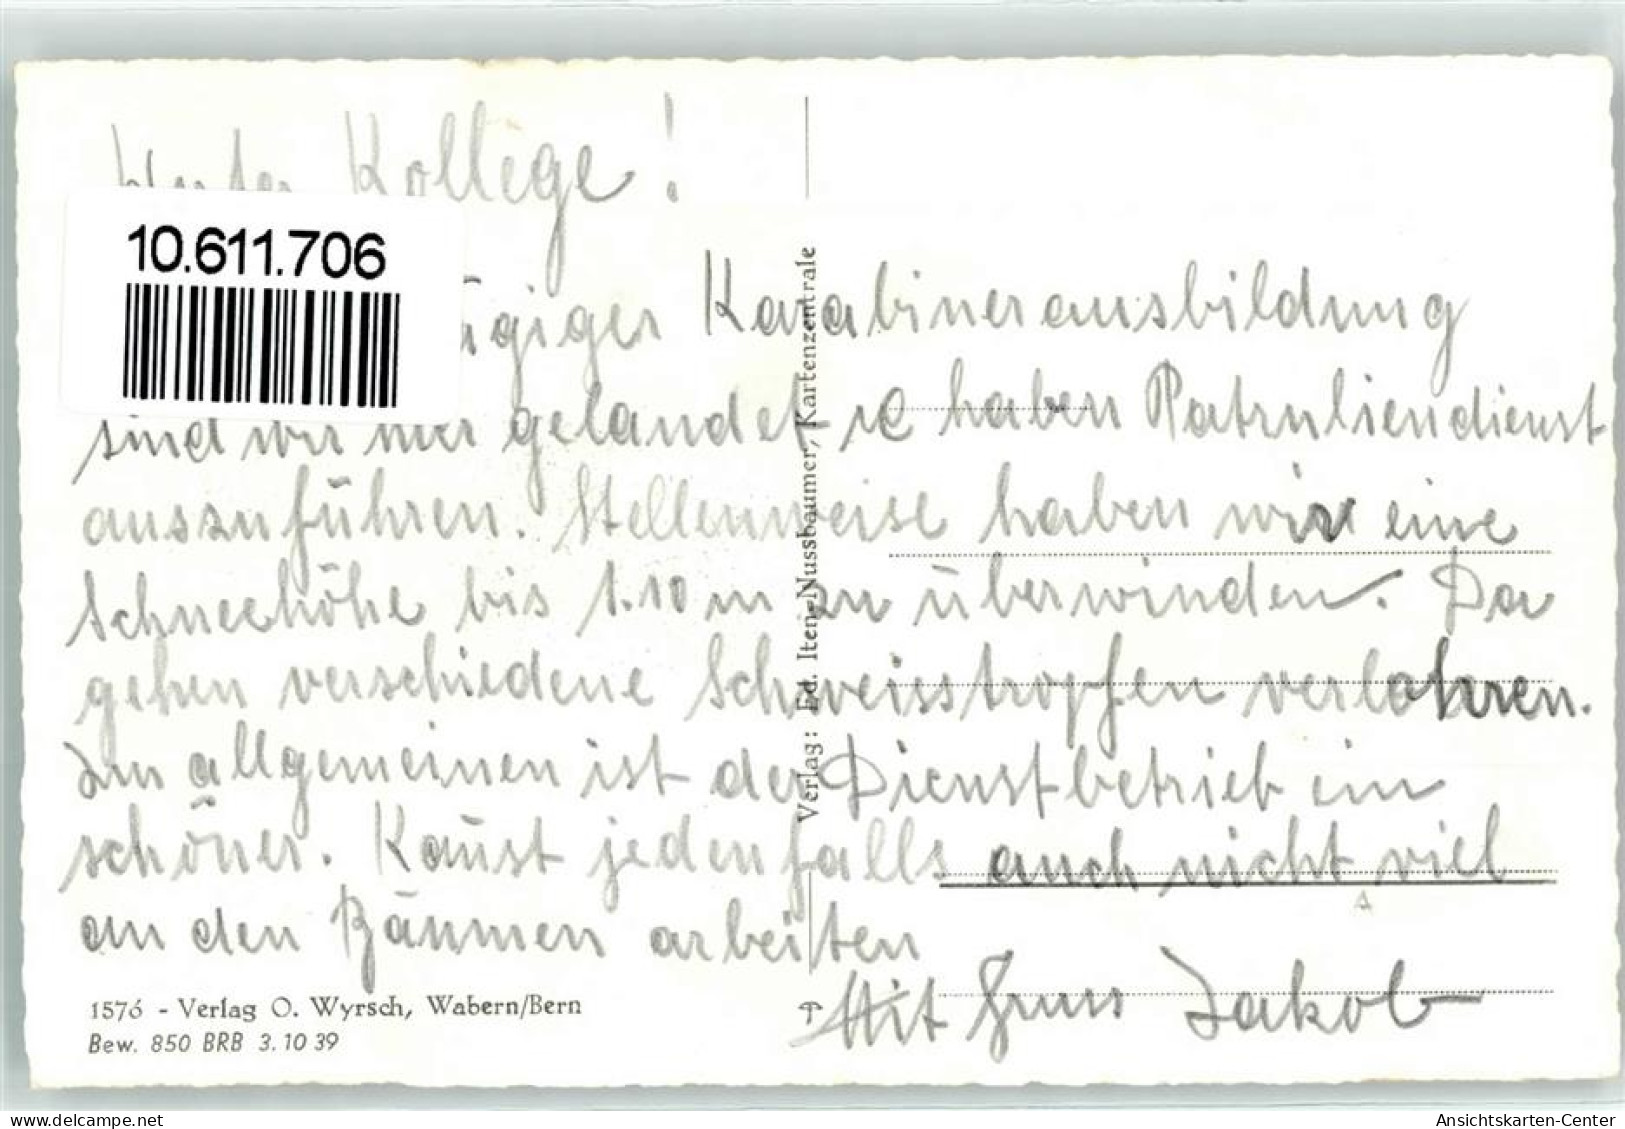 Werter Kollege!
10.611.706
Karabinerausbildung
sind wir hier gelandet u haben Patruliendienst
auszuführen. Stellenweise haben wir eine
Schneehöhe bis 1.10 m zu überwinden. Da
gehen verschiedene Schweisstropfen verlohren.
Im allgemeinen ist der Dienstbetrieb ein
schöner. Kaust jedenfalls auch nicht viel
an den Bäumen arbeiten
Mit Gruss Jakob
1576 - Verlag O. Wyrsch, Wabern/Bern
Bew. 850 BRB 3.10 39
Verlag: Ed. Iten-Nussbaumer, Kartenzentrale
delcampe.net
Ansichtskarten-Center